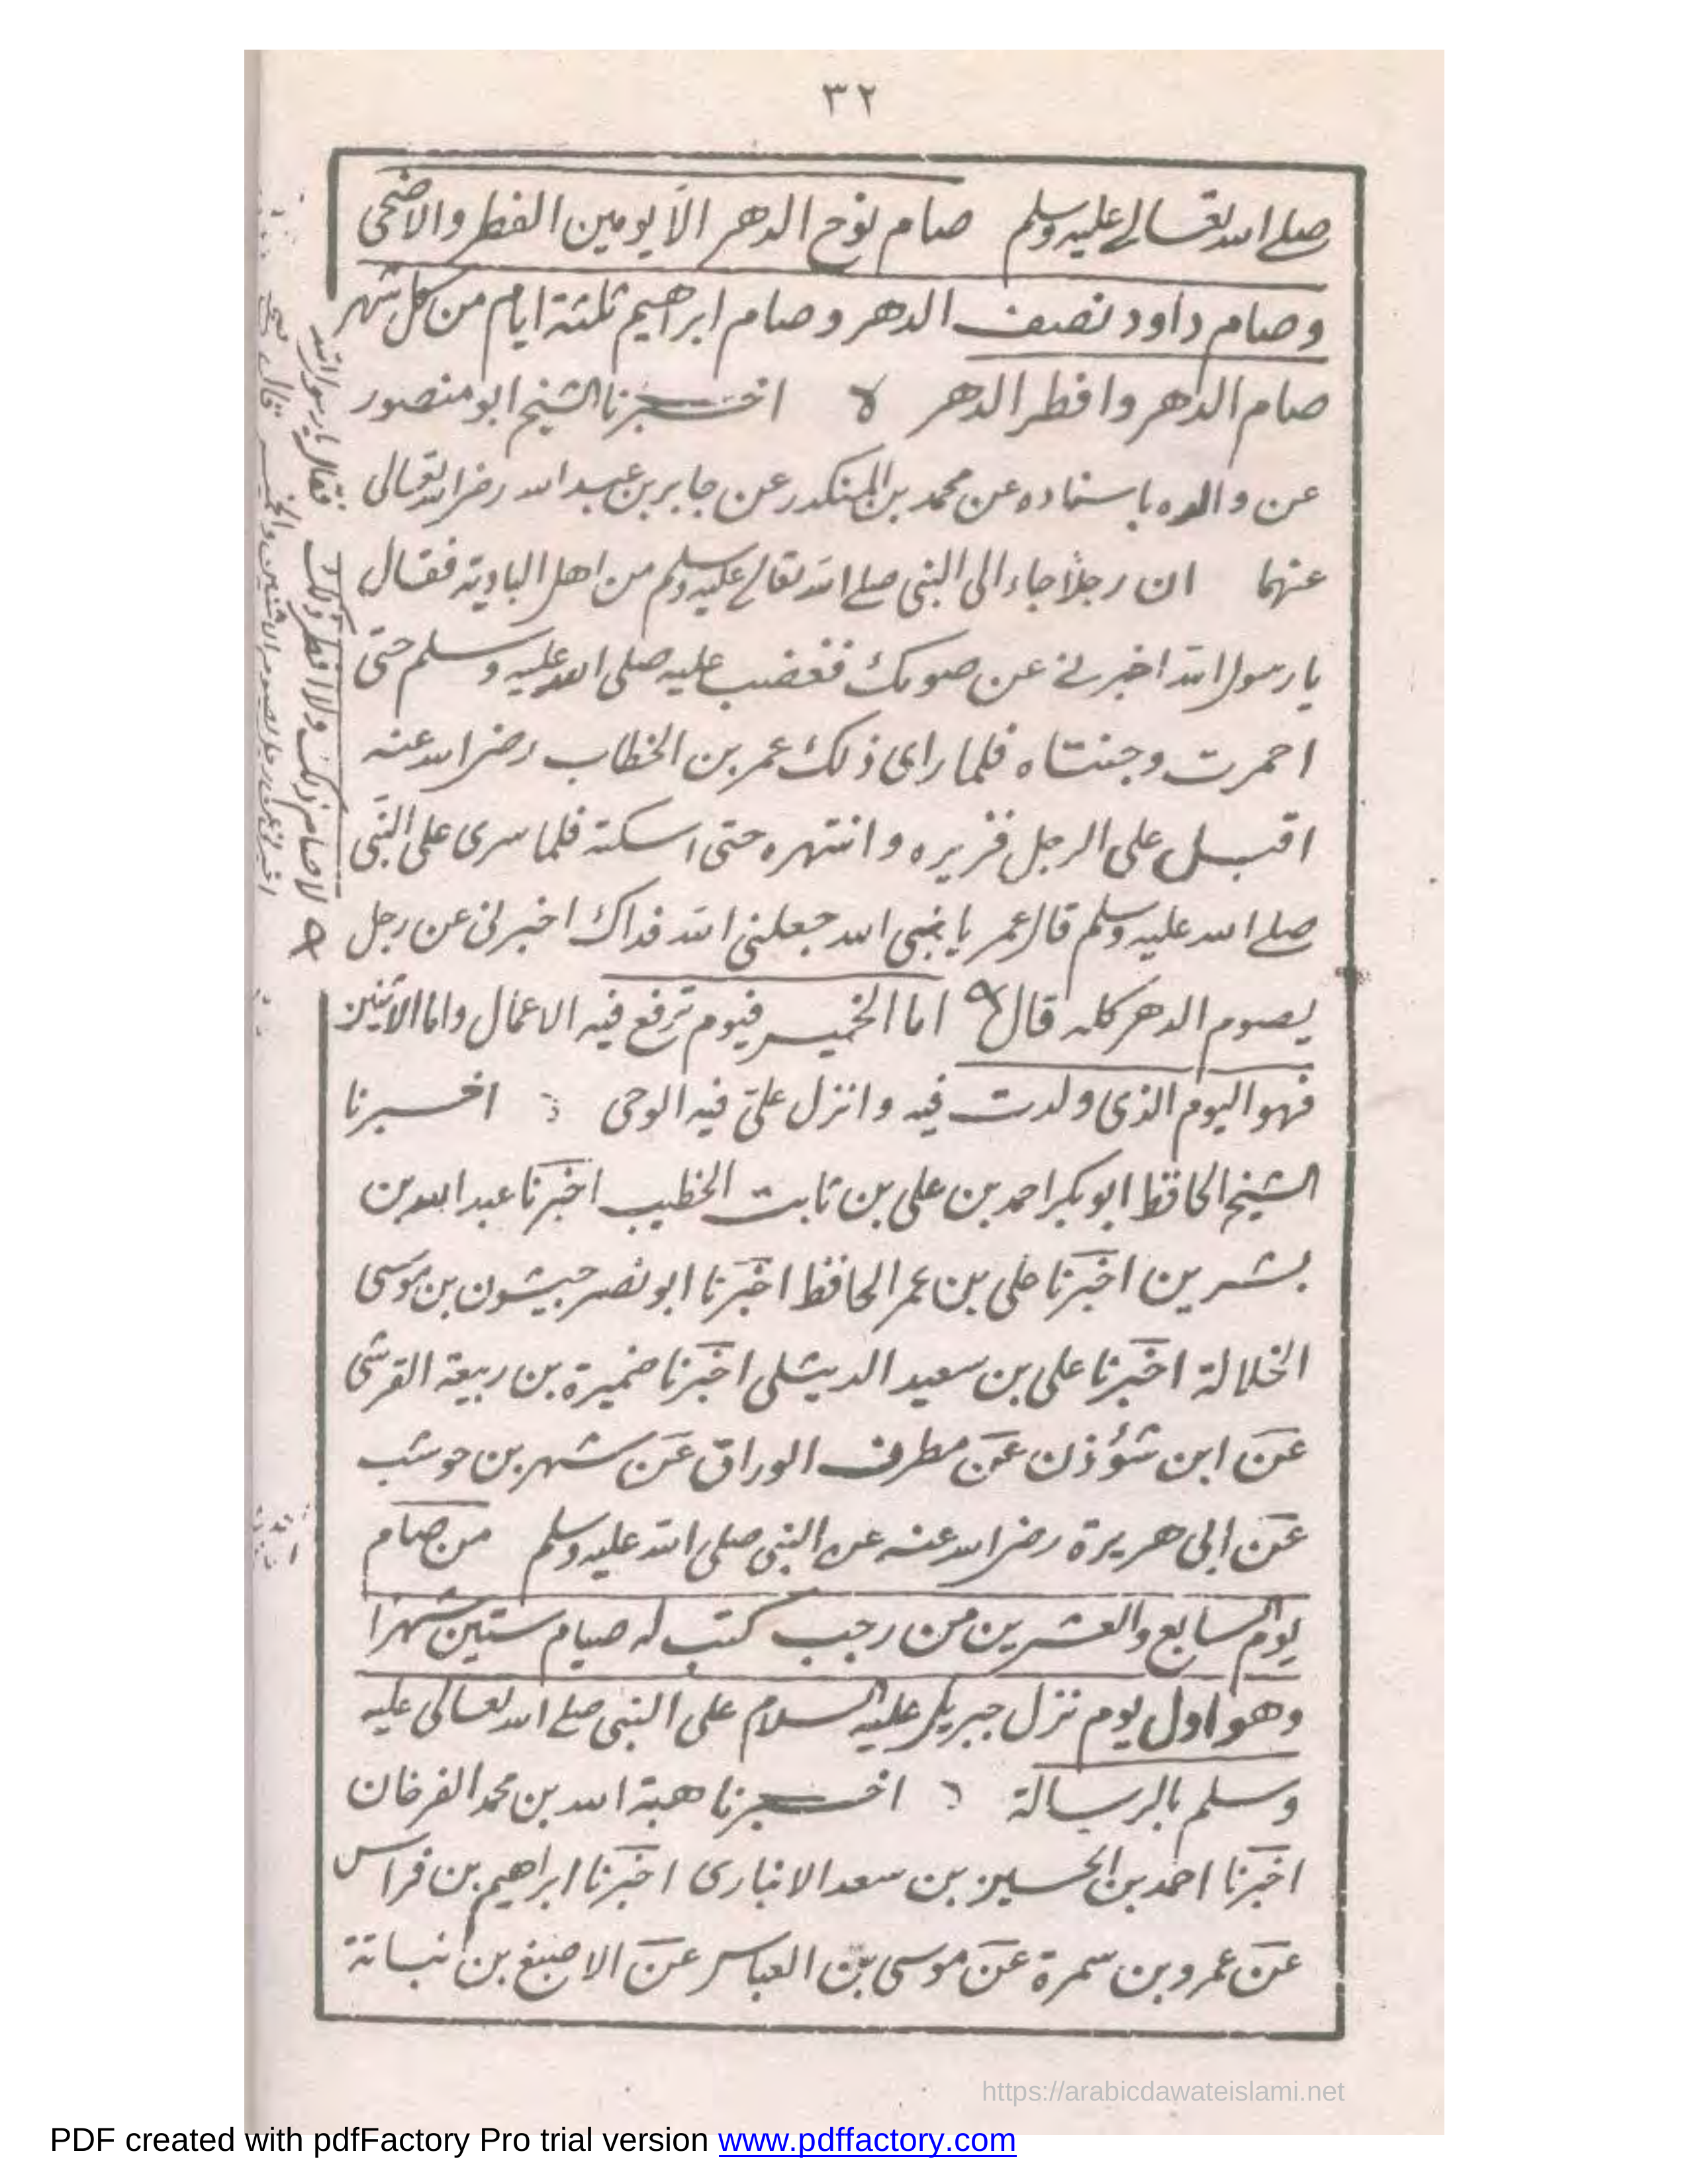 ٣٢
صلے اللہ تعالے علیہ وسلم صام نوح الدهر الا یومین الفطر والاضحی
وصام داود نصف الدهر وصام ابراهیم ثلثة ایام من کل شهر
صام الدهر وافطر الدهر اخبرنا الشیخ ابو منصور
عن والده باسناده عن محمد بن المنکدر عن جابر بن عبد الله رضی الله تعالی
عنهما ان رجلا جاء الی النبی صلے الله تعالے علیه وسلم من اهل البادیة فقال
یا رسول الله اخبرنے عن صومک فغضب علیه صلی الله علیه وسلم حتی
احمرت وجنتاه فلما رای ذلک عمر بن الخطاب رضی الله عنه
اقبل علی الرجل فزبره وانتهره حتی اسکتة فلما سری علی النبی
صلے الله علیه وسلم قال عمر یا نبی الله جعلنی الله فداک اخبرنی عن رجل
یصوم الدهر کله قال اما الخمیس فیوم ترفع فیه الاعمال واما الاثنین
فهو الیوم الذی ولدت فیه وانزل علیّ فیه الوحی اخبرنا
الشیخ الحافظ ابو بکر احمد بن علی بن ثابت الخطیب اخبرنا عبد الله بن
بشر بن اخبرنا علی بن عمر الحافظ اخبرنا ابو نصر حبیشون بن موسی
الخلالة اخبرنا علی بن سعید الدیشلی اخبرنا ضمیرة بن ربیعة القرشی
عن ابن شؤذن عن مطرف الوراق عن شهر بن حوشب
عن ابی هریرة رضی الله عنه عن النبی صلی الله علیه وسلم من صام
یوم السابع والعشرین من رجب کتب له صیام ستین شهرا
وهو اول یوم نزل جبریل علیه السلام علی النبی صلے الله تعالی علیه
وسلم بالرسالة اخبرنا هبة الله بن محمد الفرخان
اخبرنا احمد بن الحسین بن سعد الانباری اخبرنا ابراهیم بن فراس
عن عمرو بن سمرة عن موسی بن العباس عن الاصبغ بن نباتة
لا صام ذلک ولا افطر ذلک فقال یا رسول الله
اخبرنی عن رجل یصوم الاثنین والخمیس فقال
https://arabicdawateislami.net
PDF created with pdfFactory Pro trial version www.pdffactory.com